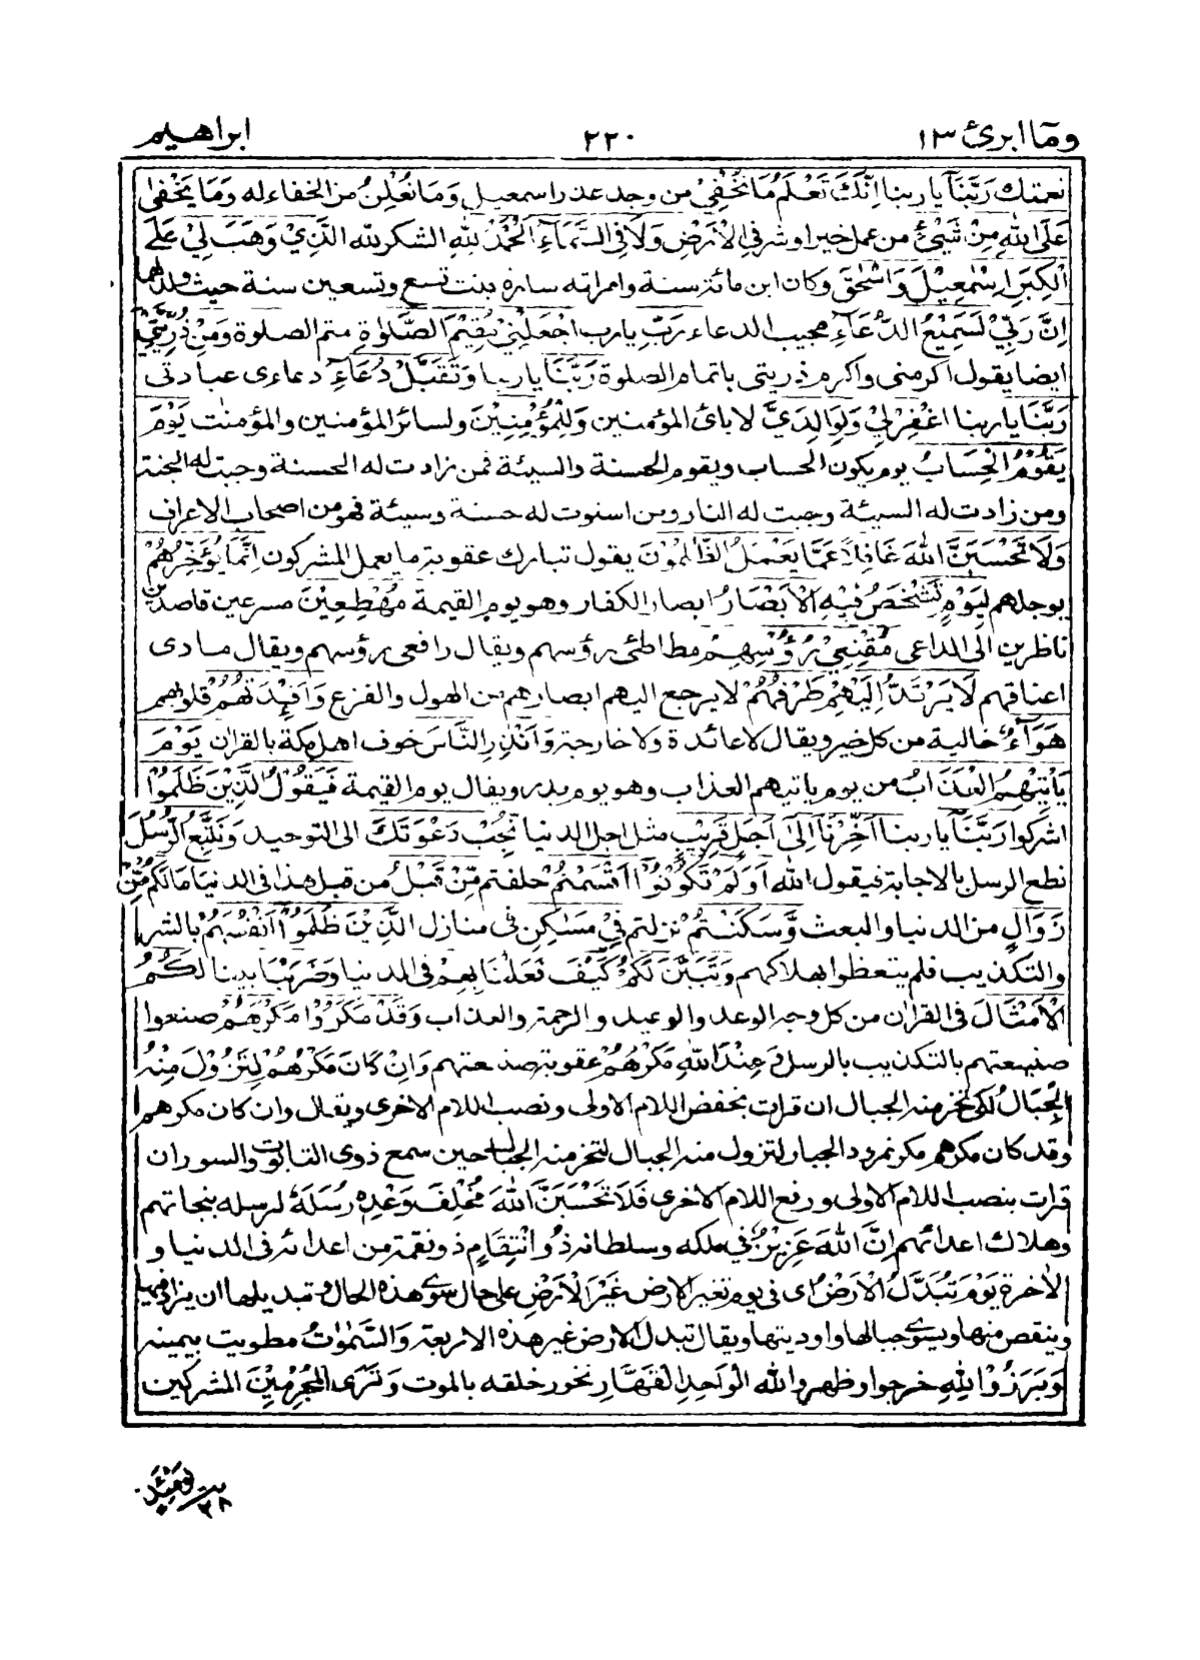 وما ابرئ ١٣
٢٢٠
ابراهيم
نعمتك رَبَّنَا يا ربنا اِنَّكَ تَعْلَمُ مَا نُخْفِيْ من وجد عند اسمعيل وَمَا نُعْلِنُ من الخفاء له وَمَا يَخْفٰى
عَلَى اللّٰهِ مِنْ شَيْئٍ من عمل خير او شر فِي الْاَرْضِ وَلَا فِى السَّمَاءِ اَلْحَمْدُ لِلّٰهِ الشكر لله الَّذِيْ وَهَبَ لِيْ عَلَى
الْكِبَرِ اِسْمٰعِيْلَ وَاِسْحٰقَ وكان ابن مائة سنة وامراته سارة بنت تسع وتسعين سنة حيث ولدلهما
اِنَّ رَبِّيْ لَسَمِيْعُ الدُّعَاءِ مجيب الدعاء رَبِّ يا رب اجْعَلْنِيْ مُقِيْمَ الصَّلٰوةِ متم الصلوة وَمِنْ ذُرِّيَّتِيْ
ايضا يقول اكرمنى واكرم ذريتى باتمام الصلوة رَبَّنَا يا ربنا وَتَقَبَّلْ دُعَاءِ دعاءى عبادتى
رَبَّنَا يا ربنا اغْفِرْلِيْ وَلِوَالِدَيَّ لاباىٔ المؤمنين وَلِلْمُؤْمِنِيْنَ ولسائر المؤمنين والمؤمنٰت يَوْمَ
يَقُوْمُ الْحِسَابُ يوم يكون الحساب ويقوم الحسنة والسيئة فمن زادت له الحسنة وجبت له الجنة
ومن زادت له السيئة وجبت له النار ومن استوت له حسنة وسيئة فهو من اصحاب الاعراف
وَلَا تَحْسَبَنَّ اللّٰهَ غَافِلًا عَمَّا يَعْمَلُ الظّٰلِمُوْنَ يقول تبارك عقوبة ما يعمل المشركون اِنَّمَا يُؤَخِّرُهُمْ
يوجلهم لِيَوْمٍ تَشْخَصُ فِيْهِ الْاَبْصَارُ ابصار الكفار وهو يوم القيمة مُهْطِعِيْنَ مسرعين قاصدين
ناظرين الى الداعى مُقْنِعِيْ رُؤُسِهِمْ مطاطئى رؤسهم ويقال رافعى رؤسهم ويقال مادى
اعناقهم لَا يَرْتَدُّ اِلَيْهِمْ طَرْفُهُمْ لا يرجع اليهم ابصارهم من الهول والفزع وَاَفْئِدَتُهُمْ قلوبهم
هَوَاءٌ خالية من كل خير ويقال لا عائدة ولا خارجة وَاَنْذِرِ النَّاسَ خوف اهل مكة بالقران يَوْمَ
يَاْتِيْهِمُ الْعَذَابُ من يوم ياتيهم العذاب وهو يوم بدر ويقال يوم القيمة فَيَقُوْلُ الَّذِيْنَ ظَلَمُوْا
اشركوا رَبَّنَا يا ربنا اَخِّرْنَا اِلٰى اَجَلٍ قَرِيْبٍ مثل اجل الدنيا نُجِبْ دَعْوَتَكَ الى التوحيد وَنَتَّبِعِ الرُّسُلَ
نطع الرسل بالاجابة فيقول الله اَوَلَمْ تَكُوْنُوْا اَقْسَمْتُمْ حلفتم مِّنْ قَبْلُ من قبل هذا فى الدنيا مَا لَكُمْ مِّنْ
زَوَالٍ من الدنيا والبعث وَّسَكَنْتُمْ نزلتم فِيْ مَسَاكِنِ فى منازل الَّذِيْنَ ظَلَمُوْا اَنْفُسَهُمْ بالشرك
والتكذيب فلم يتعظوا بهلاكهم وَتَبَيَّنَ لَكُمْ كَيْفَ فَعَلْنَا بِهِمْ فى الدنيا وَضَرَبْنَا بينا لَكُمُ
الْاَمْثَالَ فى القرٰان من كل وجه الوعد والوعيد والرحمة والعذاب وَقَدْ مَكَرُوْا مَكْرَهُمْ صنعوا
صنيعتهم بالتكذيب بالرسل وَعِنْدَ اللّٰهِ مَكْرُهُمْ عقوبة صنعتهم وَاِنْ كَانَ مَكْرُهُمْ لِتَزُوْلَ مِنْهُ
الْجِبَالُ لكى تخر منه الجبال ان قرات بخفض اللام الاولى ونصب اللام الاخرى ويقال وان كان مكرهم
وقد كان مكرهم مكر نمرود الجبار لتزول منه الجبال لتخر منه الجبال حين سمع دوى التابوت والنسور ان
قرات بنصب اللام الاولى ورفع اللام الاخرى فَلَا تَحْسَبَنَّ اللّٰهَ مُخْلِفَ وَعْدِهٖ رُسُلَهٗ لرسله بنجاتهم
وهلاك اعدائهم اِنَّ اللّٰهَ عَزِيْزٌ فى ملكه وسلطانه ذُو انْتِقَامٍ ذو نقمة من اعدائه فى الدنيا و
الاٰخرة يَوْمَ تُبَدَّلُ الْاَرْضُ اى فى يوم تغير الارض غَيْرَ الْاَرْضِ على حال سوى هذه الحال وتبديلها ان يزاد فيها
وينقص منها ويسوى جبالها واوديتها ويقال تبدل الارض غير هذه الاربعة وَالسَّمٰوٰتُ مطويت بيمينه
وَبَرَزُوْا لِلّٰهِ خرجوا وظهروا لله الْوَاحِدِ الْقَهَّارِ نحو رخلقه بالموت وَتَرَى الْمُجْرِمِيْنَ المشركين